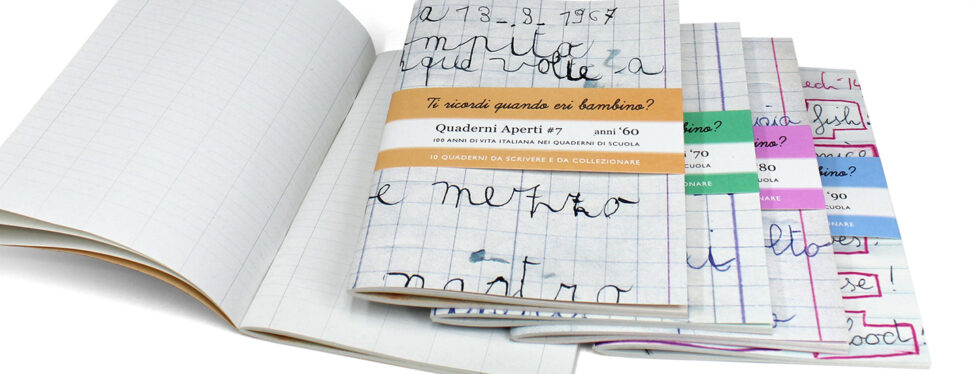 a 13-9-1967
mpita
que volte
a
Ti ricordi quando eri bambino?
Quaderni Aperti #7 anni '60
100 ANNI DI VITA ITALIANA NEI QUADERNI DI SCUOLA
10 QUADERNI DA SCRIVERE E DA COLLEZIONARE
e mezzo
nastro
bino?
'70
SCUOLA
ONARE
bino?
'80
UOLA
NARE
lto
edì 14
fish!
mice
bino?
'90
SCUOLA
ONARE
es!
se!
ood!